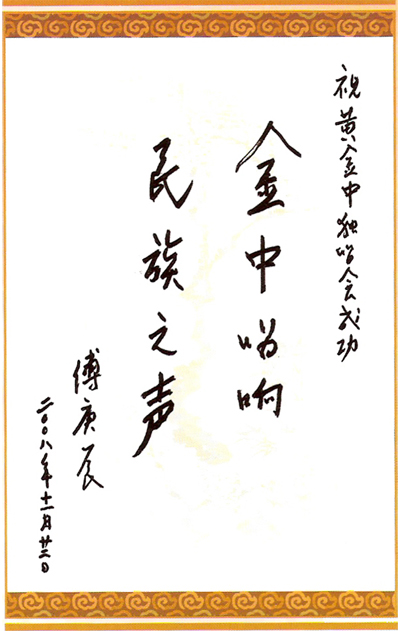 祝黄金中独唱会成功
金中嗡响
民族之声
傅庚辰
二〇〇八年十一月廿三日